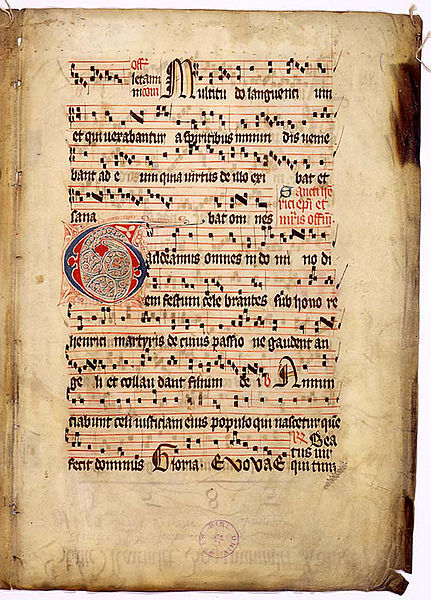 Off
letam
Multitu do languenci um
et qui vexabantur a spiritibus inmun dis venie
bant ad e um quia virtus de illo exi bat et
sana bat om nes
Sancti he
rici epi et
Gaudeamus omnes in do mi no di
em festum cele brantes sub hono re
henrici martyris de cuius passio ne gaudent an
ge li et collau dant filium de i Annun
ciabunt celi iusticiam eius populo qui nascetur que
fecit dominus Gloria. EVOVAE
Bea
tus vir
qui tim